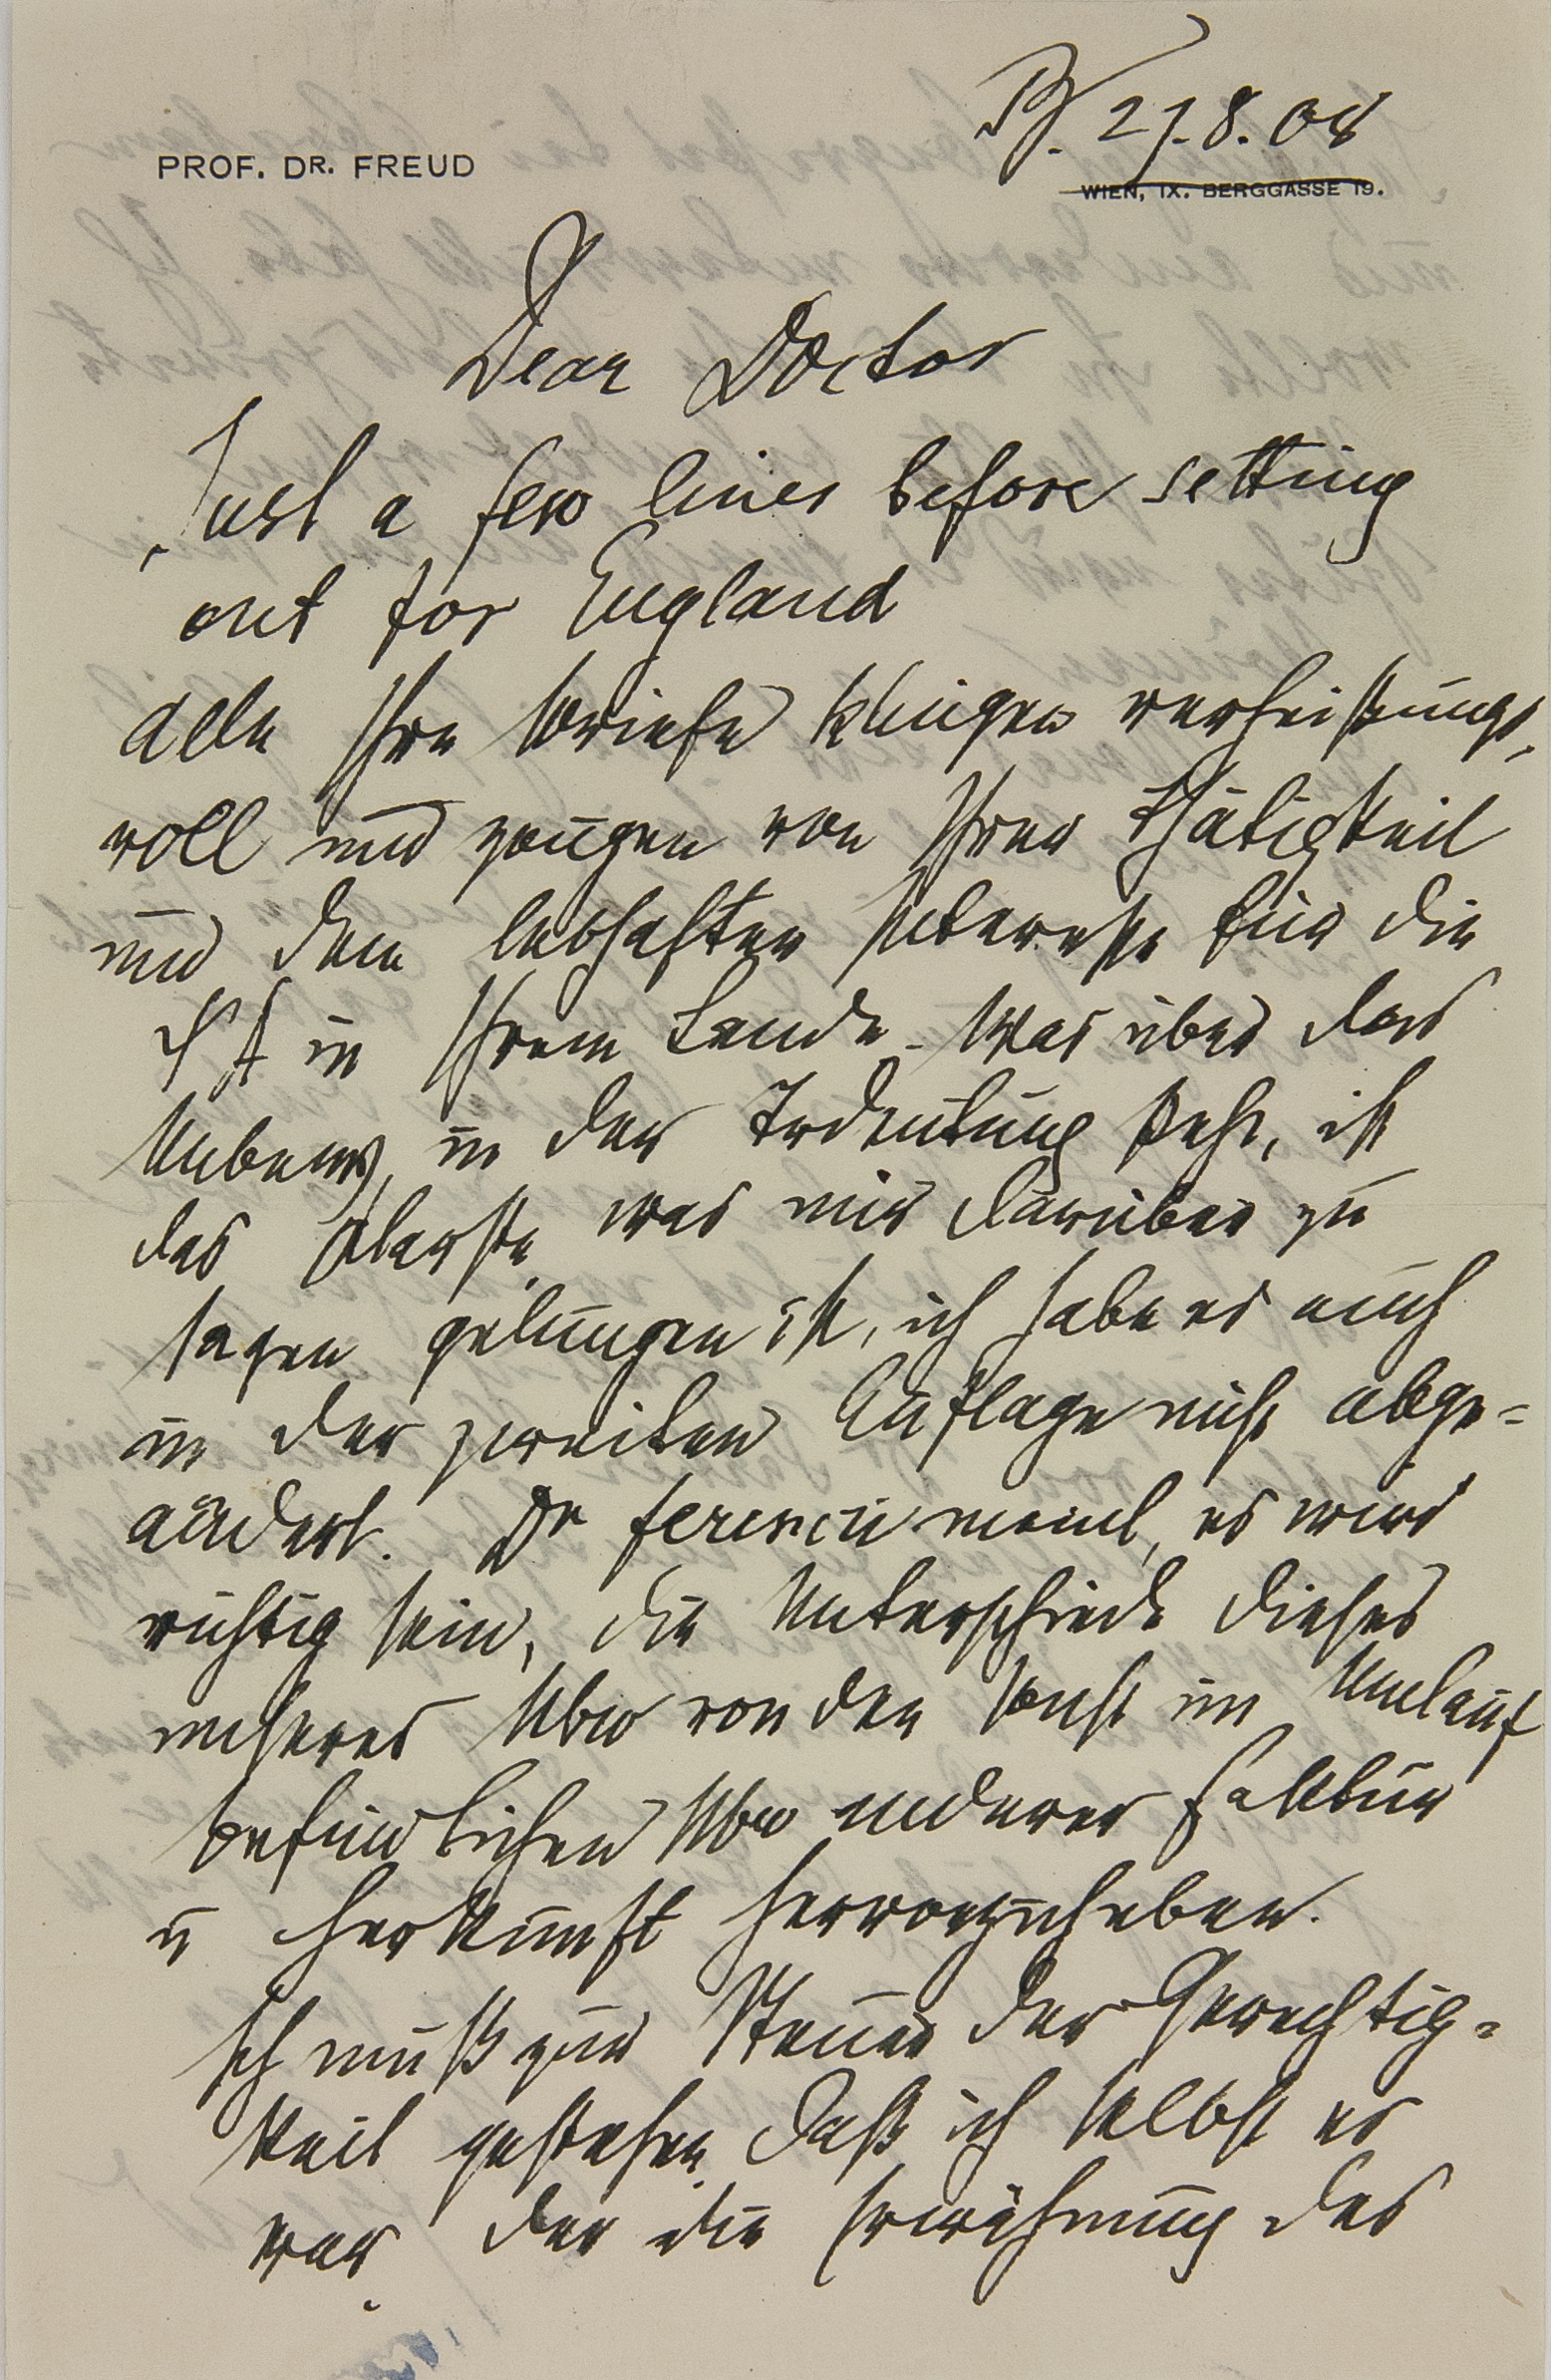 Bg. 27.8.08
PROF. DR. FREUD
WIEN, IX. BERGGASSE 19.
Dear Doctor
Just a few lines before setting
out for England
Alle Ihre Briefe klingen verheißungs-
voll und zeugen von Ihrer Thätigkeit
und dem lebhaften Interesse für die
ΨA in Ihrem Lande. Was über das
Unbew. in der Trdeutung steht, ist
das Klarste, was mir darüber zu
sagen gelungen ist, ich habe es auch
in der zweiten Auflage nicht abge=
ändert. Dr Ferenczi meint, es wird
richtig sein, die Unterschiede dieses
unseres Ubw von den sonst im Umlauf
befindlichen Ubw anderer Faktur
u Herkunft hervorzuheben.
Ich muß zur Steuer der Gerechtig=
keit gestehen, daß ich selbst es
war, der die Erwähnung des